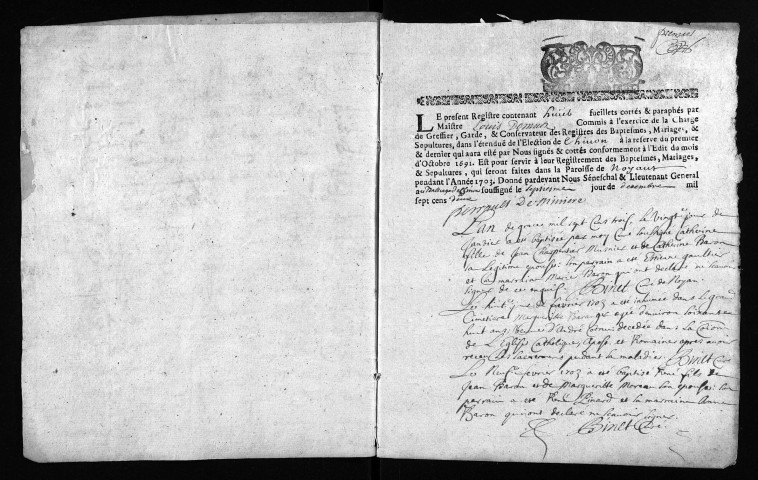 premier
LE present Registre contenant huict fueillets cottés & paraphés par
Maistre Louis Commis à l'exercice de la Charge
de Greffier, Garde, & Conservateur des Registres des Baptesmes, Mariages, &
Sepultures, dans l'étenduë de l'Election de Chinon à la reserve du premier
& dernier qui aura esté par Nous signés & cottés conformement à l'Edit du mois
d'Octobre 1691. Est pour servir à leur Registrement des Baptesmes, Mariages,
& Sepultures, qui seront faites dans la Paroisse de Noyant
pendant l'Année 1703. Donné pardevant Nous Séneschal & Lieutenant General
soussigné le septiesme jour de decembre mil
sept cens deux
L'an de grace mil sept Cens trois, le vingt jour de
Janvier a esté baptisée par moy Curé soussigné Catherine
fille de Jean Charpentier Musnier et de Catherine Baron
sa legitime epouse; son parrain a esté Estienne gaultier
et sa marraine Marie Baron qui ont declaré ne scavoir
signer de ce enquis. Binet Curé de Noyan
Le huit de fevrier 1703 a esté inhumée dans le grand
Cimetiere Margueritte agée d'environ soixante et
huit ans, veuve d'André Cornu decedée dans la Communion
de L'Eglise Catholique, Apost. et Romaine apres avoir
receu les sacrements pendant sa maladie. Binet Curé
Le Neuf fevrier 1703 a esté baptisé René fils de
Jean Baron et de Margueritte Moreau son epouse; son
parrain a esté René Pinard et la marraine Anne
Baron qui ont declaré ne scavoir signer.
Binet Curé